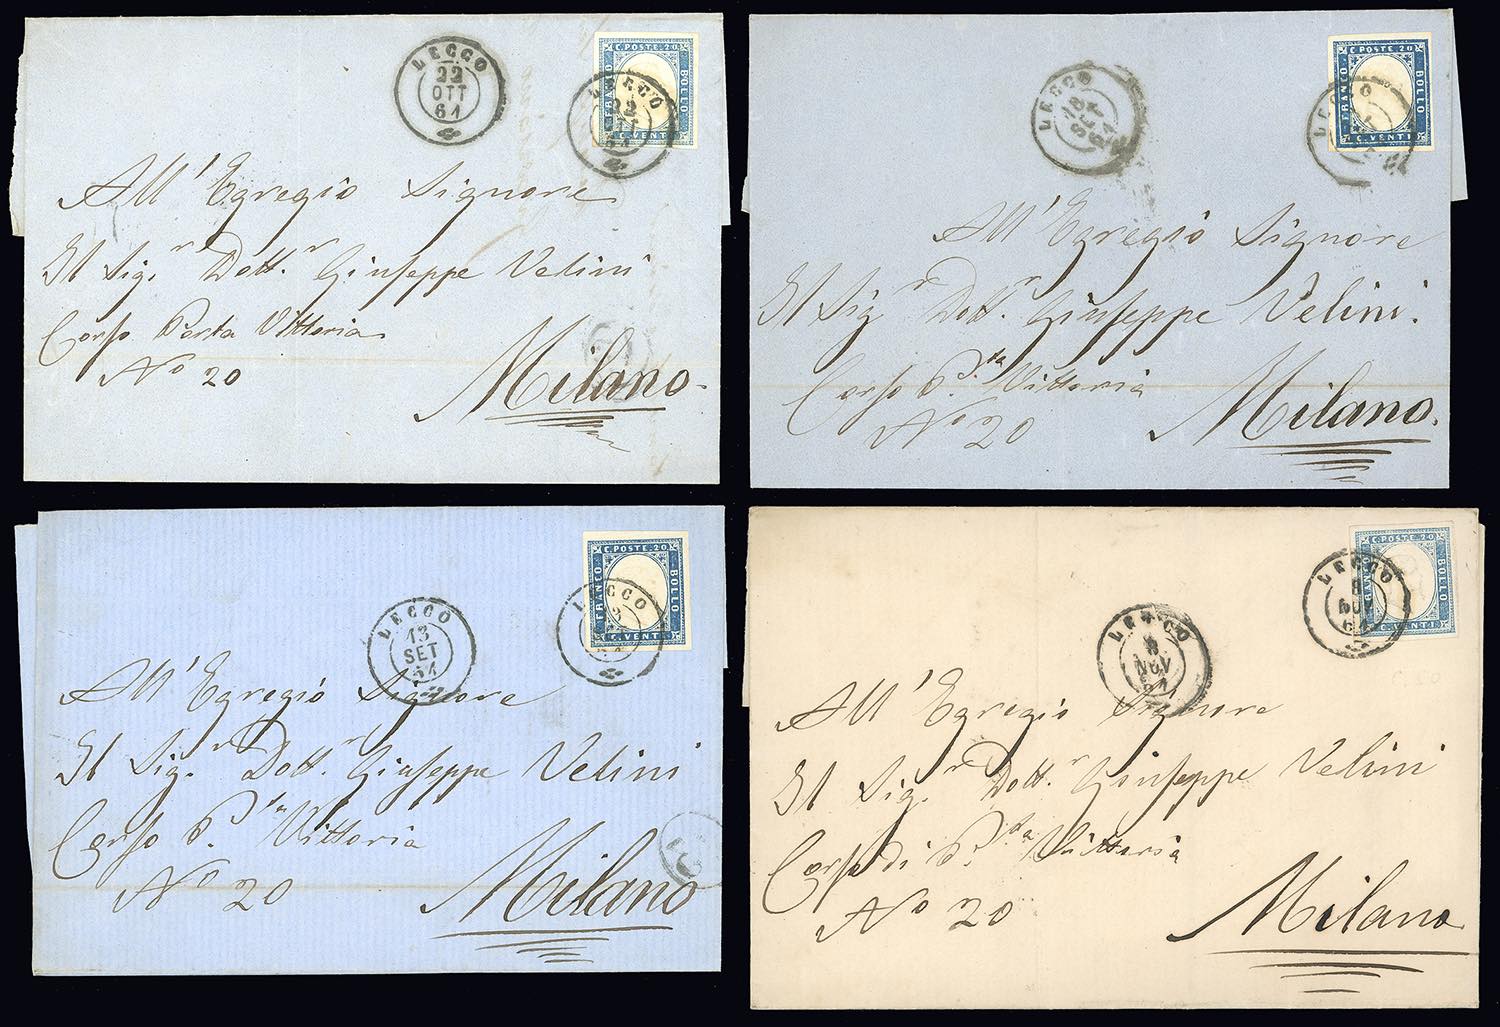 LECCO
22
OTT
61
C. POSTE. 20
FRANCO
BOLLO
C. VENTI
LECCO
22
All' Egregio Signore
Il Sig.r Dott.r Giuseppe Velini
Corso Porta Vittoria
No 20
Milano
LECCO
18
SET
61
C. POSTE. 20
FRANCO
BOLLO
C. VENTI
LECCO
All' Egregio Signore
Il Sig.r Dott.r Giuseppe Velini.
Corso P.ta Vittoria
No 20
Milano.
LECCO
13
SET
61
C. POSTE. 20
FRANCO
BOLLO
C. VENTI
LECCO
All' Egregio Signore
Il Sig.r Dott.r Giuseppe Velini
Corso P.ta Vittoria
No 20
Milano
LECCO
8
NOV
61
C. POSTE. 20
FRANCO
BOLLO
C. VENTI
LECCO
8
NOV
61
All' Egregio Signore
Il Sig.r Dott.r Giuseppe Velini
Corso di P.ta Vittoria
No 20
Milano